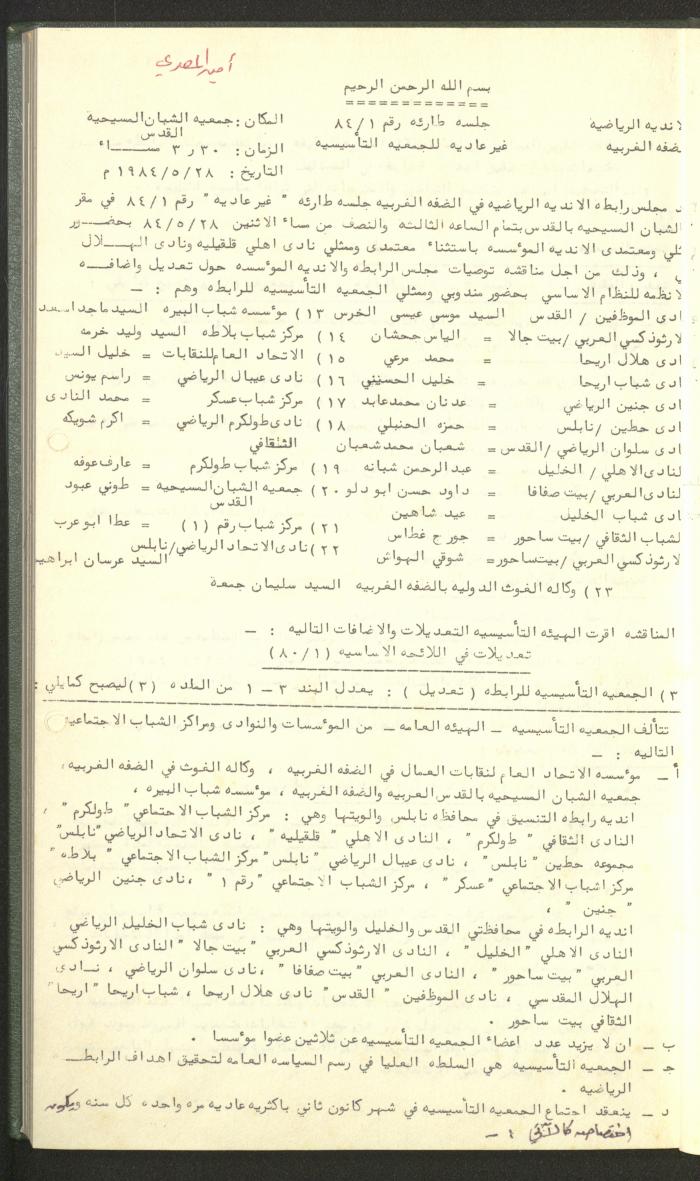 أمين المصري
بسم الله الرحمن الرحيم
============
لانديه الرياضيه جلسه طارئه رقم ٨٤/١ المكان : جمعيه الشبان المسيحية
لضفه الغربيه غير عاديه للجمعيه التأسيسيه القدس
الزمان : ٣٠ ر ٣ مســاء
التاريخ : ١٩٨٤/٥/٢٨ م
د مجلس رابطه الانديه الرياضيه في الضفه الغربيه جلسه طارئه " غير عاديه " رقم ٨٤/١ في مقر
الشبان المسيحيه بالقدس بتمام الساعه الثالثه والنصف من مساء الاثنين ٨٤/٥/٢٨ بحضــور
ثلي ومعتمدى الانديه المؤسسه باستثناء معتمدى وممثلي نادى اهلي قلقيليه ونادى الهــلال
ي ، وذلك من اجل مناقشه توصيات مجلس الرابطه والانديه المؤسسه حول تعديل واضافــه
لانظمه للنظام الاساسي بحضور مندوبي وممثلي الجمعيه التأسيسيه للرابطه وهم : ـ
ادى الموظفين / القدس السيد موسى عيسى الخرس ١٣) مؤسسه شباب البيره السيد ماجد اسعد
لارثوذكسي العربي /بيت جالا = الياس جحشان ١٤) مركز شباب بلاطه السيد وليد خرمه
ادى هلال اريحا = محمد مرعي ١٥) الاتحاد العام للنقابات = خليل السيد
ادى شباب اريحا = خليل الحسيني ١٦) نادى عيبال الرياضي = راسم يونس
ادى جنين الرياضي = عدنان محمد عابد ١٧) مركز شباب عسكر = محمد النادى
ادى حطين /نابلس = حمزه الحنبلي ١٨) نادى طولكرم الرياضي = اكرم شويكه
ادى سلوان الرياضي /القدس = شعبان محمد شعبان الثقافي
لنادى الاهلي / الخليل = عبد الرحمن شبانه ١٩) مركز شباب طولكرم = عارف عوفه
لنادى العربي /بيت صفافا = داود حسن ابو دلو ٢٠) جمعيه الشبان المسيحيه = طوني عبود
ادى شباب الخليل = عيد شاهين القدس
لشباب الثقافي /بيت ساحور = جورج غطاس ٢١) مركز شباب رقم (١) = عطا ابو عرب
لارثوذكسي العربي /بيت ساحور= شوقي الهواش ٢٢) نادى الاتحاد الرياضي/نابلس
السيد عرسان ابراهيم
٢٣) وكاله الغوث الدوليه بالضفه الغربيه السيد سليمان جمعة
المناقشه اقرت الهيئه التأسيسيه التعديلات والاضافات التاليه : ـ
تعديلات في اللائحه الاساسيه (٨٠/١)
٣) الجمعيه التأسيسيه للرابطه ( تعديل ) : يعدل البند ٣ ـ ١ من الماده (٣) ليصبح كمايلي :
تتألف الجمعيه التأسيسيه ـ الهيئه العامه ـ من المؤسسات والنوادى ومراكز الشباب الاجتماعيه
التاليه : ـ
أ ـ مؤسسه الاتحاد العام لنقابات العمال في الضفه الغربيه ، وكاله الغوث في الضفه الغربيه ،
جمعيه الشبان المسيحيه بالقدس العربيه والضفه الغربيه ، مؤسسه شباب البيره ،
انديه رابطه التنسيق في محافظه نابلس والويتها وهي : مركز الشباب الاجتماعي " طولكرم " ،
النادى الثقافي " طولكرم " ، النادى الاهلي " قلقيليه " ، نادى الاتحاد الرياضي "نابلس"
مجموعه حطين "نابلس" ، نادى عيبال الرياضي "نابلس" مركز الشباب الاجتماعي " بلاطه "
مركز اشباب الاجتماعي "عسكر" ، مركز الشباب الاجتماعي "رقم ١ " ،نادى جنين الرياضي
" جنين " ،
انديه الرابطه في محافظتي القدس والخليل والويتها وهي : نادى شباب الخليل الرياضي
النادى الاهلي "الخليل " ، النادى الارثوذكسي العربي "بيت جالا " النادى الارثوذكسي
العربي "بيت ساحور" ، النادى العربي "بيت صفافا " ،نادى سلوان الرياضي ، نــادى
الهلال المقدسي ، نادى الموظفين " القدس" نادى هلال اريحا ، شباب اريحا " اريحا "
الثقافي بيت ساحور .
ب ـ ان لا يزيد عدد اعضاء الجمعيه التأسيسيه عن ثلاثين عضوا مؤسسا .
جـ ـ الجمعيه التأسيسيه هي السلطه العليا في رسم السياسه العامه لتحقيق اهداف الرابطــ
الرياضيه .
د ـ ينعقد اجتماع الجمعيه التأسيسيه في شهر كانون ثاني باكثريه عاديه مره واحده كل سنه ويكون
اختصاصه كالآتي : ـ